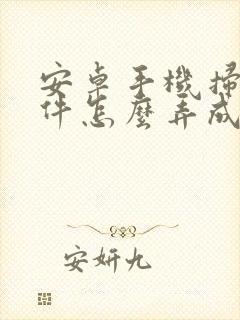 安卓手機掃
件怎麼弄成
安妍九